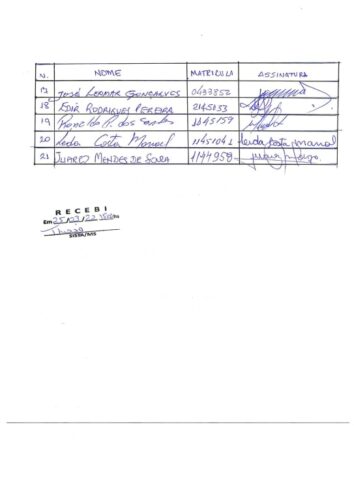 N. NOME MATRICULA ASSINATURA
17 JOSÉ LEMAR GONÇALVES 0433852
18 EDIR RODRIGUES PEREIRA 2145153
19 Reinaldo A. dos Santos 1145159
20 Leda Costa Manoel 11451041 Leida Costa Manoel
21 JUAREZ MENDES DE 1144959
RECEBI
Em 25/03/22
SISTA/MS